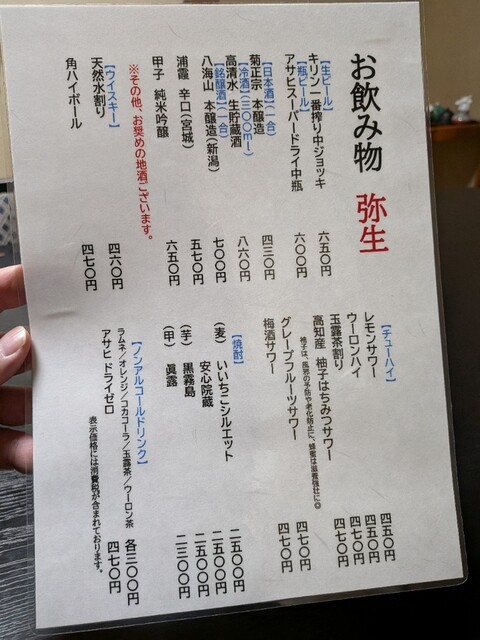 お飲み物　弥生
【生ビール】
キリン一番搾り中ジョッキ　六五〇円
【瓶ビール】
アサヒスーパードライ中瓶　六〇〇円
【日本酒】（一合）
菊正宗　本醸造　四三〇円
【冷酒】（三〇〇ｍｌ）
高清水　生貯蔵酒　八六〇円
【銘醸酒】（一合）
八海山　本醸造（新潟）　七〇〇円
浦霞　辛口（宮城）　五七〇円
甲子　純米吟醸　六五〇円
※その他、お奨めの地酒ございます。
【ウイスキー】
天然水割り　四六〇円
角ハイボール　四七〇円
【チューハイ】
レモンサワー　四五〇円
ウーロンハイ　四五〇円
玉露茶割り　四七〇円
高知産　柚子はちみつサワー　四七〇円
柚子は、風邪の予防や老化防止に、蜂蜜は滋養強壮に◎
グレープフルーツサワー　四七〇円
梅酒サワー　四七〇円
【焼酎】
（麦）　いいちこシルエット　二五〇〇円
安心院蔵　二五〇〇円
（芋）　黒霧島　二五〇〇円
（甲）　眞露　二三〇〇円
【ノンアルコールドリンク】
ラムネ／オレンジ／コカコーラ／玉露茶／ウーロン茶　各三〇〇円
アサヒ　ドライゼロ　四七〇円
表示価格には消費税が含まれております。